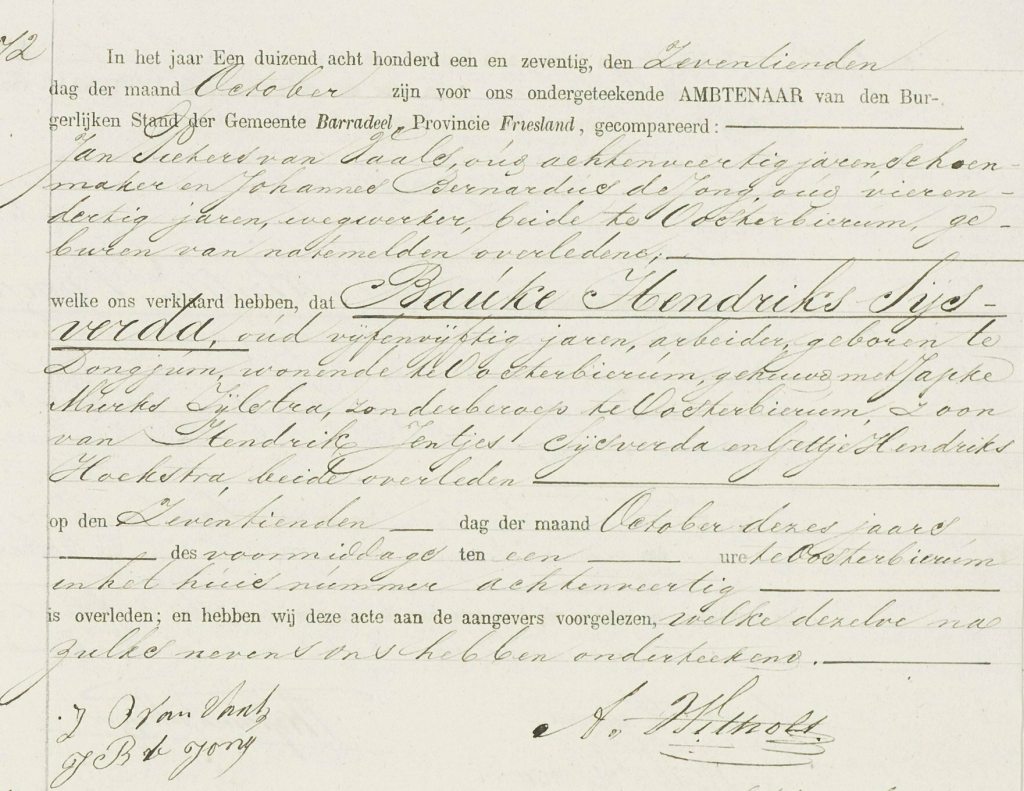 72
In het jaar Een duizend acht honderd een en zeventig, den Zeventienden
dag der maand October zijn voor ons ondergeteekende AMBTENAAR van den Bur-
gerlijken Stand der Gemeente Barradeel, Provincie Friesland, gecompareerd:
Jan Pieters van Vaals, oud achtenveertig jaren, schoen-
maker en Johannes Bernardus de Jong, oud vieren-
dertig jaren, wegwerker, beide te Oosterbierum, ge-
buren van natemelden overledene,
welke ons verklaard hebben, dat Bauke Hendriks Sijs-
verda, oud vijfenvijftig jaren, arbeider, geboren te
Dongjum, wonende te Oosterbierum, gehuwd met Japke
Murks Zijlstra, zonder beroep te Oosterbierum, zoon
van Hendrik Jentjes Sijsverda en Hendriks
Hoekstra, beide overleden
op den Zeventienden dag der maand October dezes jaars
des voormiddags ten een ure te Oosterbierum
in het huis nummer achtenveertig
is overleden; en hebben wij deze acte aan de aangevers voorgelezen, welke dezelve na
zulks nevens ons hebben onderteekend.
J P van
J B de Jong
A.